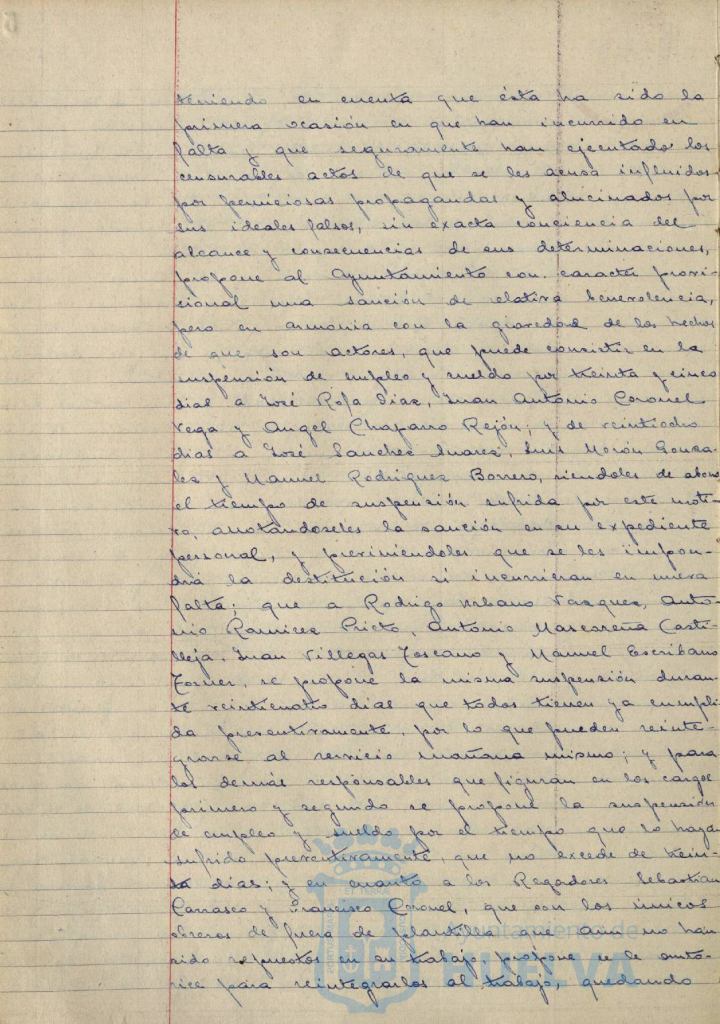 teniendo en cuenta que ésta ha sido la
primera ocasión en que han incurrido en
falta y que seguramente han ejecutado los
censurables actos de que se les acusa influidos
por perniciosas propagandas y alucinados por
sus ideales falsos, sin exacta conciencia del
alcance y consecuencias de sus determinaciones,
propone al Ayuntamiento con caracter provi-
cional una sanción de relativa benevolencia,
pero en armonia con la gravedad de los hechos
de que son actores, que puede consistir en la
suspensión de empleo y sueldo por treinta y cinco
dias a José Rofa Diaz, Juan Antonio Coronel
Vega y Angel Chaparro Rejón; y de veintiocho
dias a José Sanchez Suarez, Luis Morón Gonza-
lez y Manuel Rodriguez Borrero, siendoles de abono
el tiempo de suspensión sufrida por este moti-
vo, anotándoseles la sanción en su expediente
personal, y previniendoles que se les impon-
drá la destitución si incurrieran en nueva
falta; que a Rodrigo Urbano Vazquez, Anto-
nio Ramirez Prieto, Antonio Mascareña Casti-
lleja, Juan Villegas Toscano y Manuel Escribano
Forner, se propone la misma suspensión duran-
te veinticuatro dias que todos tienen ya cumpli-
da preventivamente, por lo que pueden reinte-
grarse al servicio mañana mismo; y para
los demás responsables que figuran en los cargos
primero y segundo se propone la suspensión
de empleo y sueldo por el tiempo que lo hayan
sufrido preventivamente, que no excede de trein-
ta dias; y en cuanto a los Regadores Sebastian
Carrasco y Francisco Coronel, que son los únicos
obreros de fuera de plantilla que aun no han
sido repuestos en su trabajo, propone se le auto-
rice para reintegrarlos al trabajo, quedando
Ayuntamiento de
HUELVA